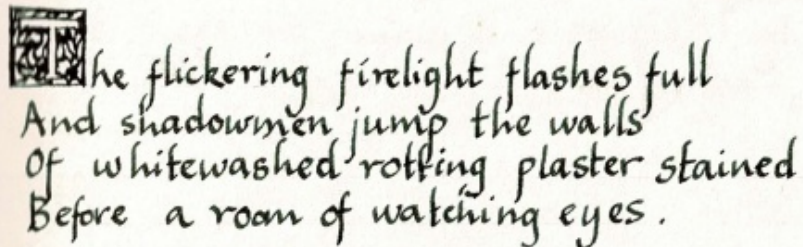 The flickering firelight flashes full
And shadowmen jump the walls
Of whitewashed rotting plaster stained
Before a roam of watching eyes.